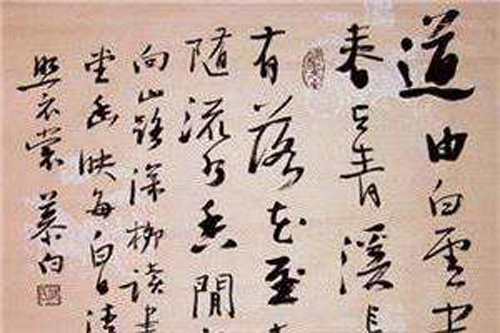 道由白雲
春与青溪長
有落花至
隨流水香閒
向山路深柳讀書
堂幽映每白日清
照衣裳